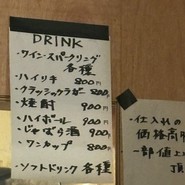 DRINK
・ワイン・スパークリング
各種
・ハイリキ 800円
・クラッシックラガー 800円
・焼酎 900円
・ハイボール 900円
・じゃばら酒 900円
・ワンカップ 800円
・ソフトドリンク 各種
・仕入れの
価格高
一部値上
頂